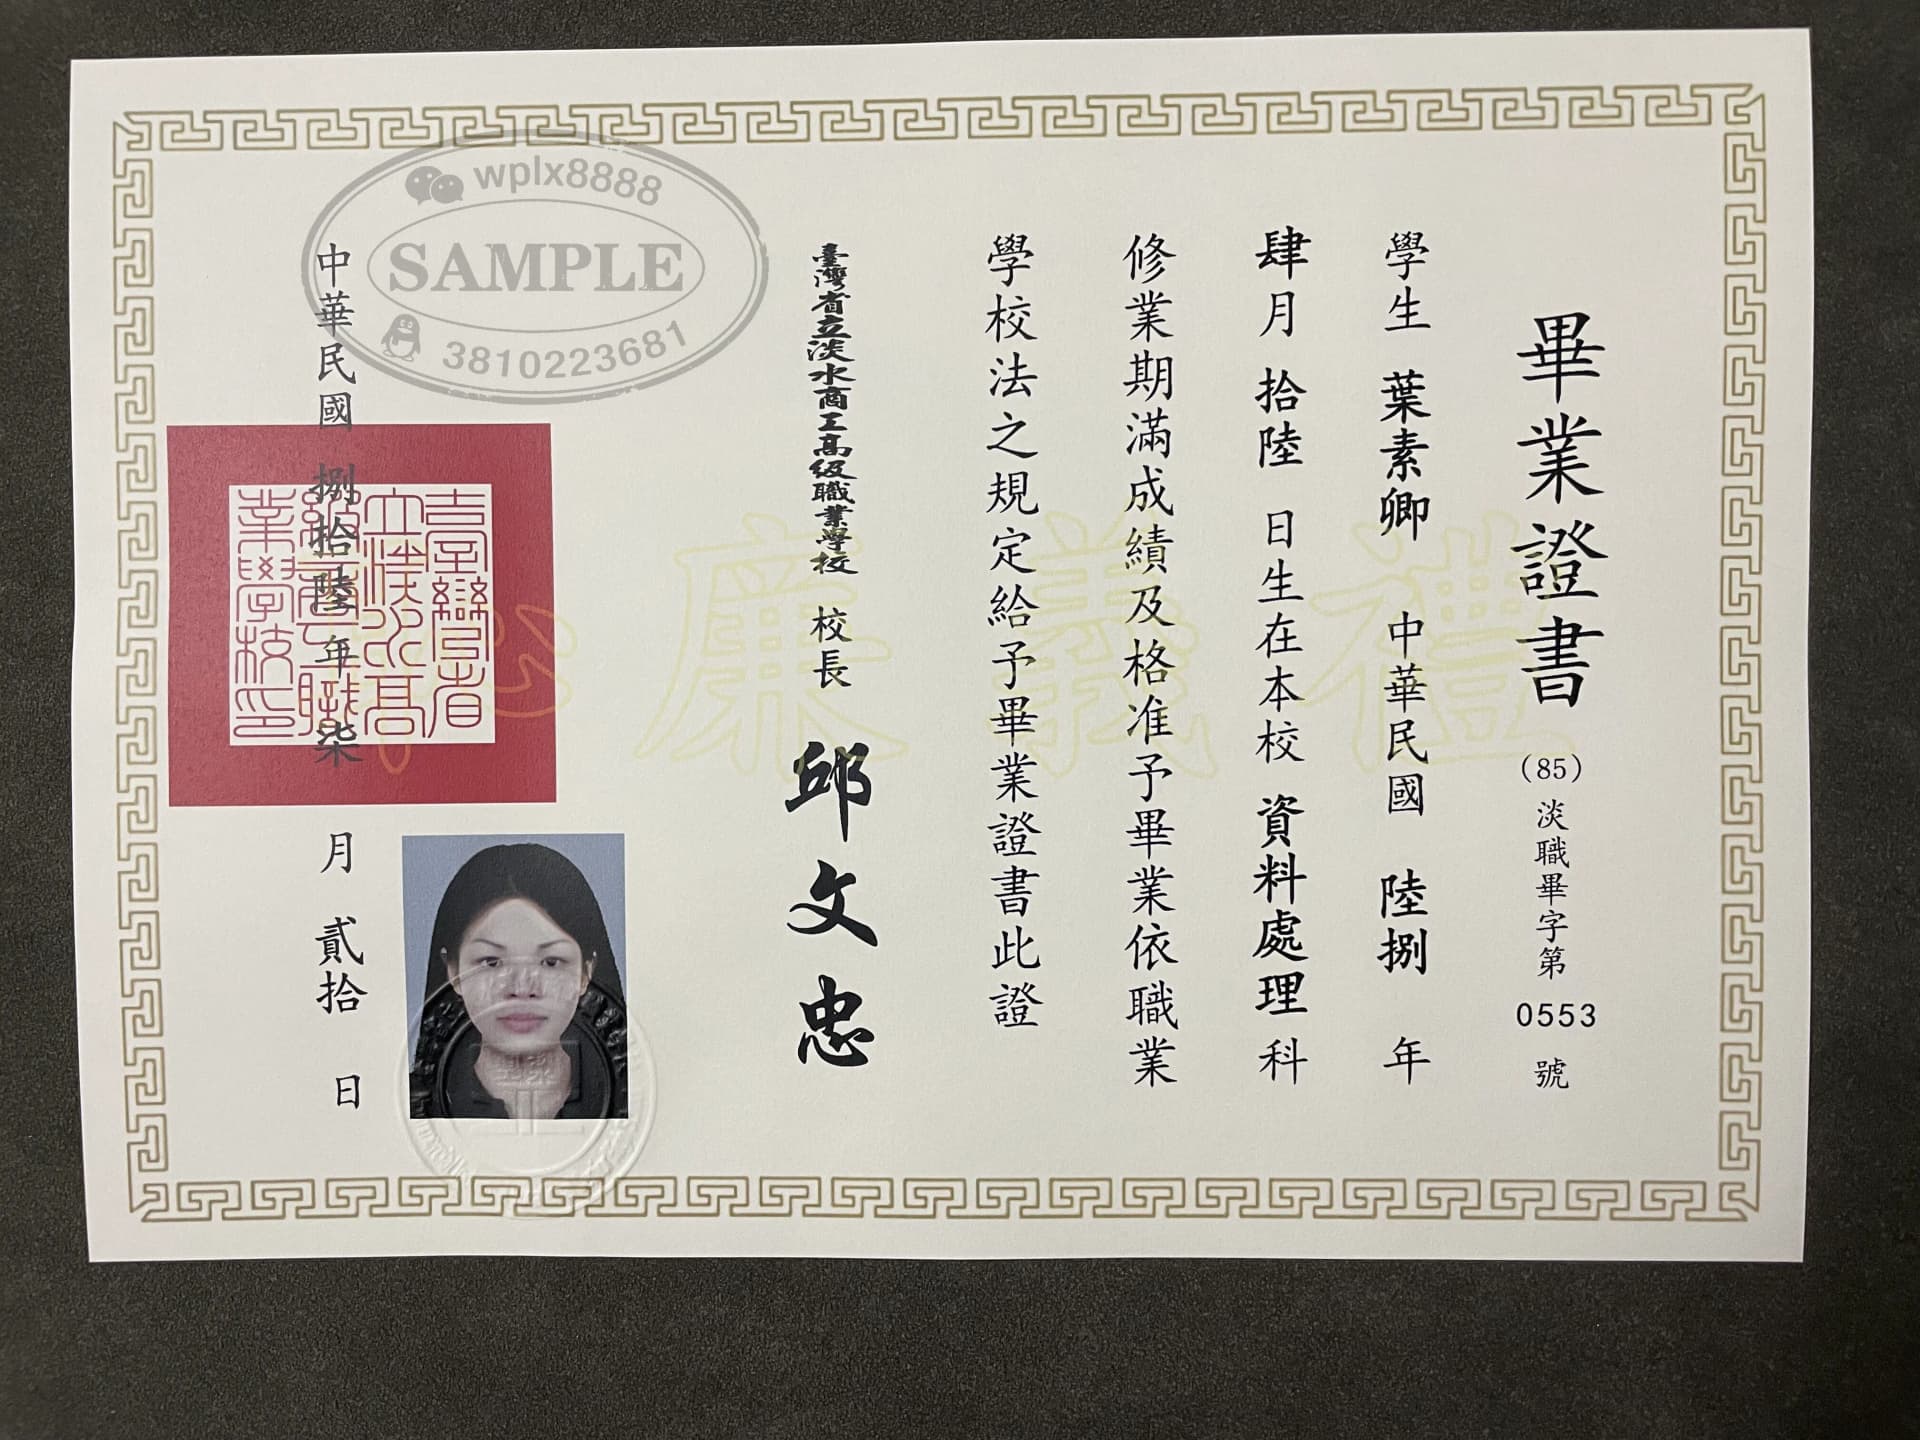 畢業證書
(85)淡職畢字第0553號
學生 葉素卿 中華民國 陸捌 年
肆月 拾陸 日生在本校 資料處理 科
修業期滿成績及格准予畢業依職業
學校法之規定給予畢業證書此證
臺灣省立淡水商工高級職業學校 校長 邱文忠
中華民國 捌拾陸年柒月 貳拾 日
禮義廉恥
wplx8888
SAMPLE
3810223681